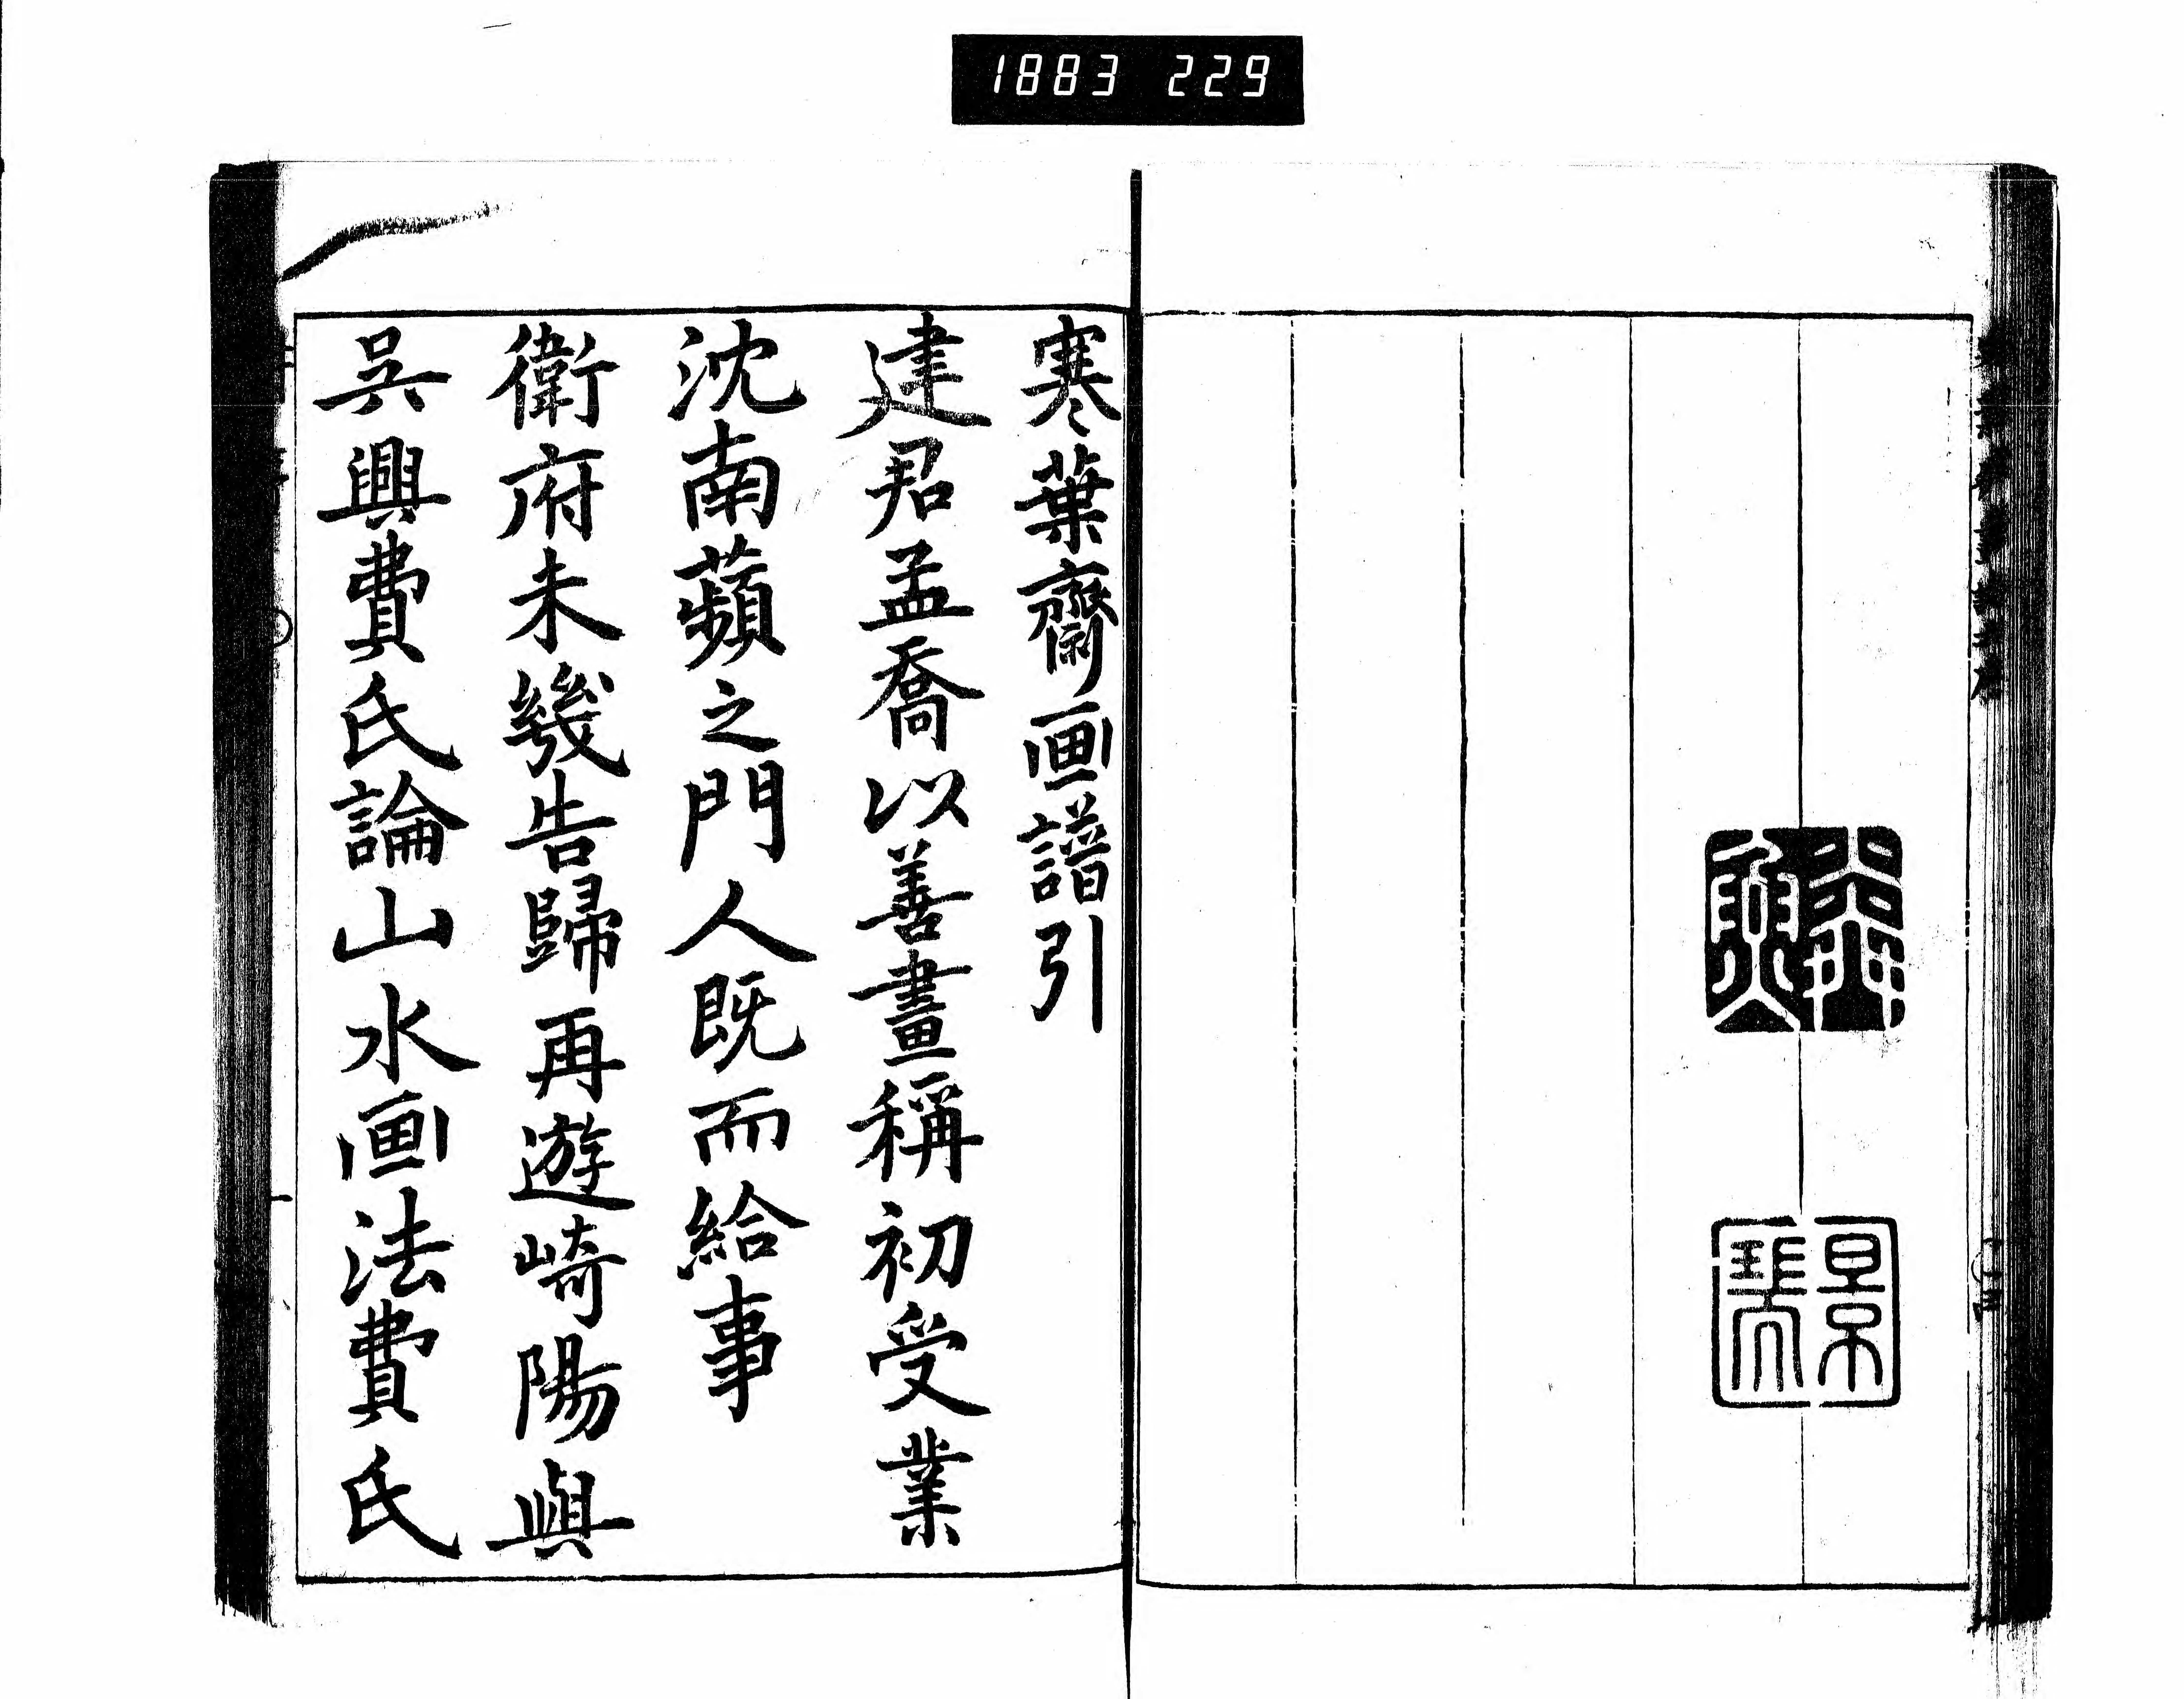 1883 229
寒葉齋画譜引
建君孟喬以善畫稱初受業
沈南蘋之門人既而給事
衛府未幾告歸再遊崎陽與
吳興費氏論山水画法費氏